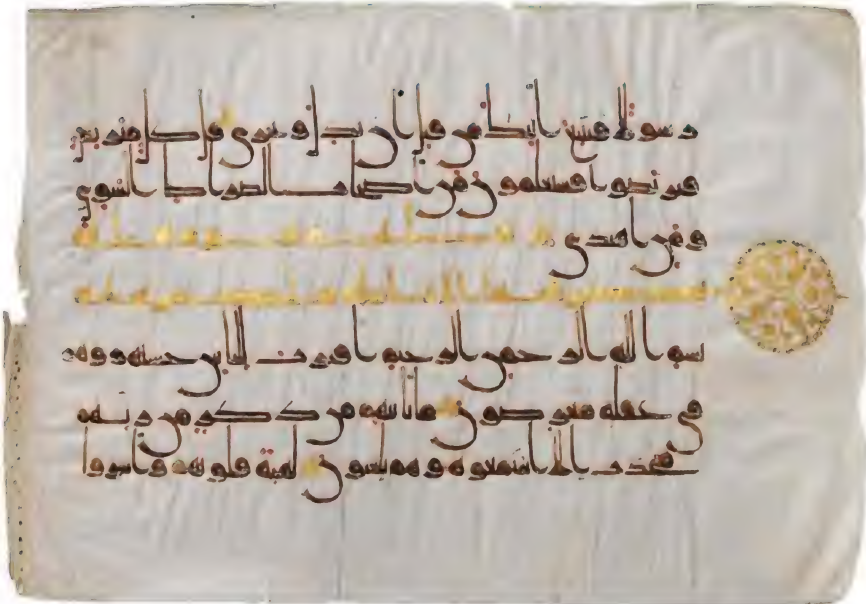 رسولا فنتبع ايتك من قبل ان نذل و نخزى قل كل متربص
فتربصوا فستعلمون من اصحب الصرط السوى
و من اهتدى
بسم الله الرحمن الرحيم اقترب للناس حسبهم وهم
في غفلة معرضون ما ياتيهم من ذكر من ربهم
محدث الا استمعوه و هم يلعبون لهية قلوبهم و اسروا